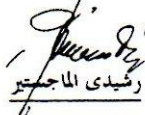 رشيدى الماجستير